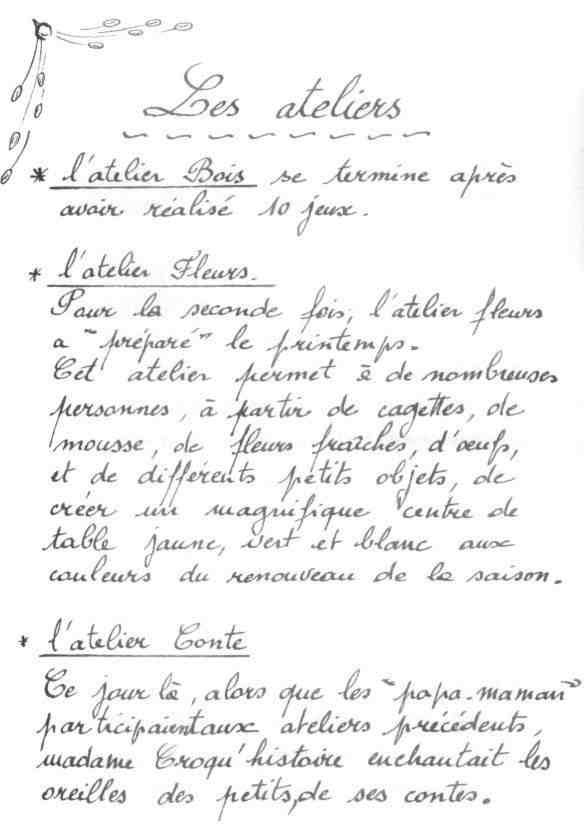 Les ateliers
* l'atelier Bois se termine après
avoir réalisé 10 jeux.
* l'atelier Fleurs.
Pour la seconde fois, l'atelier fleurs
a "préparé" le printemps.
Cet atelier permet à de nombreuses
personnes, à partir de cagettes, de
mousse, de fleurs fraîches, d'œufs,
et de différents petits objets, de
créer un magnifique centre de
table jaune, vert et blanc aux
couleurs du renouveau de la saison.
* l'atelier Conte
Ce jour là, alors que les "papa-maman"
participaient aux ateliers précédents,
madame Croqu'histoire enchantait les
oreilles des petits, de ses contes.